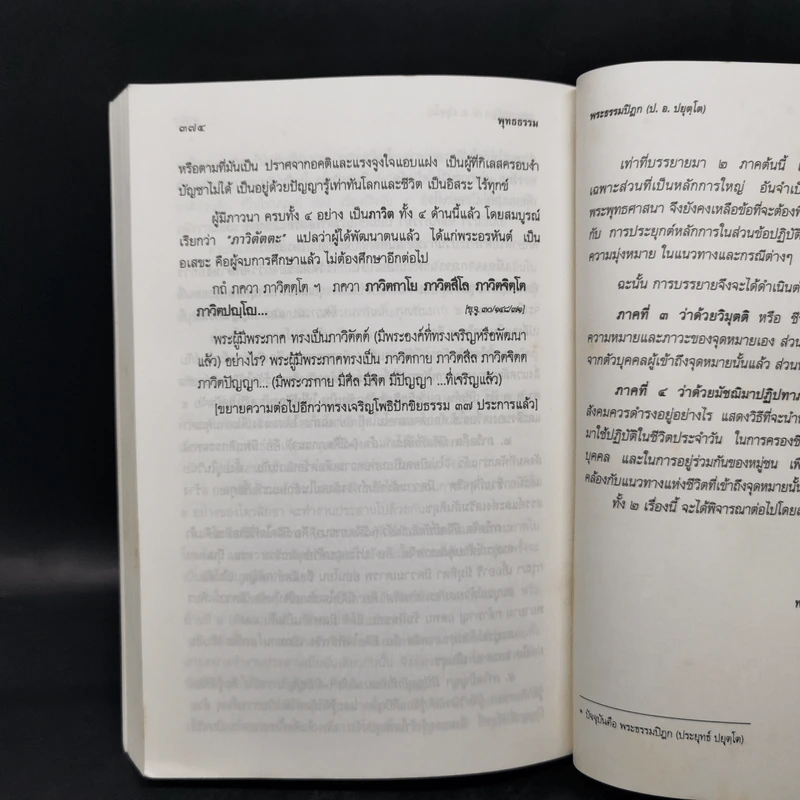 ๓๗๔ พุทธธรรม
หรือตามที่มันเป็น ปราศจากอคติและแรงจูงใจแอบแฝง เป็นผู้ที่กิเลสครอบงำ
บัญชาไม่ได้ เป็นอยู่ด้วยปัญญารู้เท่าทันโลกและชีวิต เป็นอิสระ ไร้ทุกข์
ผู้มีภาวนา ครบทั้ง ๔ อย่าง เป็นภาวิต ทั้ง ๔ ด้านนี้แล้ว โดยสมบูรณ์
เรียกว่า "ภาวิตัตตะ" แปลว่าผู้ได้พัฒนาตนแล้ว ได้แก่พระอรหันต์ เป็น
อเสขะ คือผู้จบการศึกษาแล้ว ไม่ต้องศึกษาอีกต่อไป
กถํ ภควา ภาวิตตฺโต ฯ ภควา ภาวิตกาโย ภาวิตสีโล ภาวิตจิตฺโต
ภาวิตปญฺโญ... [ขุ.จู. ๓๐/๑๔๘/๗๑]
พระผู้มีพระภาค ทรงเป็นภาวิตัตต์ (มีพระองค์ที่ทรงเจริญหรือพัฒนา
แล้ว) อย่างไร? พระผู้มีพระภาคทรงเป็น ภาวิตกาย ภาวิตสีล ภาวิตจิตต
ภาวิตปัญญา... (มีพระวรกาย มีศีล มีจิต มีปัญญา ...ที่เจริญแล้ว)
[ขยายความต่อไปอีกว่าทรงเจริญโพธิปักขิยธรรม ๓๗ ประการแล้ว]
พระธรรมปิฎก (ป. อ. ปยุตฺโต)
เท่าที่บรรยายมา ๒ ภาคต้นนี้
เฉพาะส่วนที่เป็นหลักการใหญ่ อันจำเป็
พระพุทธศาสนา จึงยังคงเหลือข้อที่จะต้องพิ
กับ การประยุกต์หลักการในส่วนข้อปฏิบัติ
ความมุ่งหมาย ในแนวทางและกรณีต่างๆ
ฉะนั้น การบรรยายจึงจะได้ดำเนินต่
ภาคที่ ๓ ว่าด้วยวิมุตติ หรือ
ความหมายและภาวะของจุดหมายเอง ส่วน
จากตัวบุคคลผู้เข้าถึงจุดหมายนั้นแล้ว ส่วน
ภาคที่ ๔ ว่าด้วยมัชฌิมาปฏิปทา
สังคมควรดำรงอยู่อย่างไร แสดงวิธีที่จะนำ
มาใช้ปฏิบัติในชีวิตประจำวัน ในการครองชี
บุคคล และในการอยู่ร่วมกันของหมู่ชน เพื
คล้องกับแนวทางแห่งชีวิตที่เข้าถึงจุดหมายนั้น
ทั้ง ๒ เรื่องนี้ จะได้พิจารณาต่อไปโดย
* ปัจจุบันคือ พระธรรมปิฎก (ประยุทธ์ ปยุตฺโต)